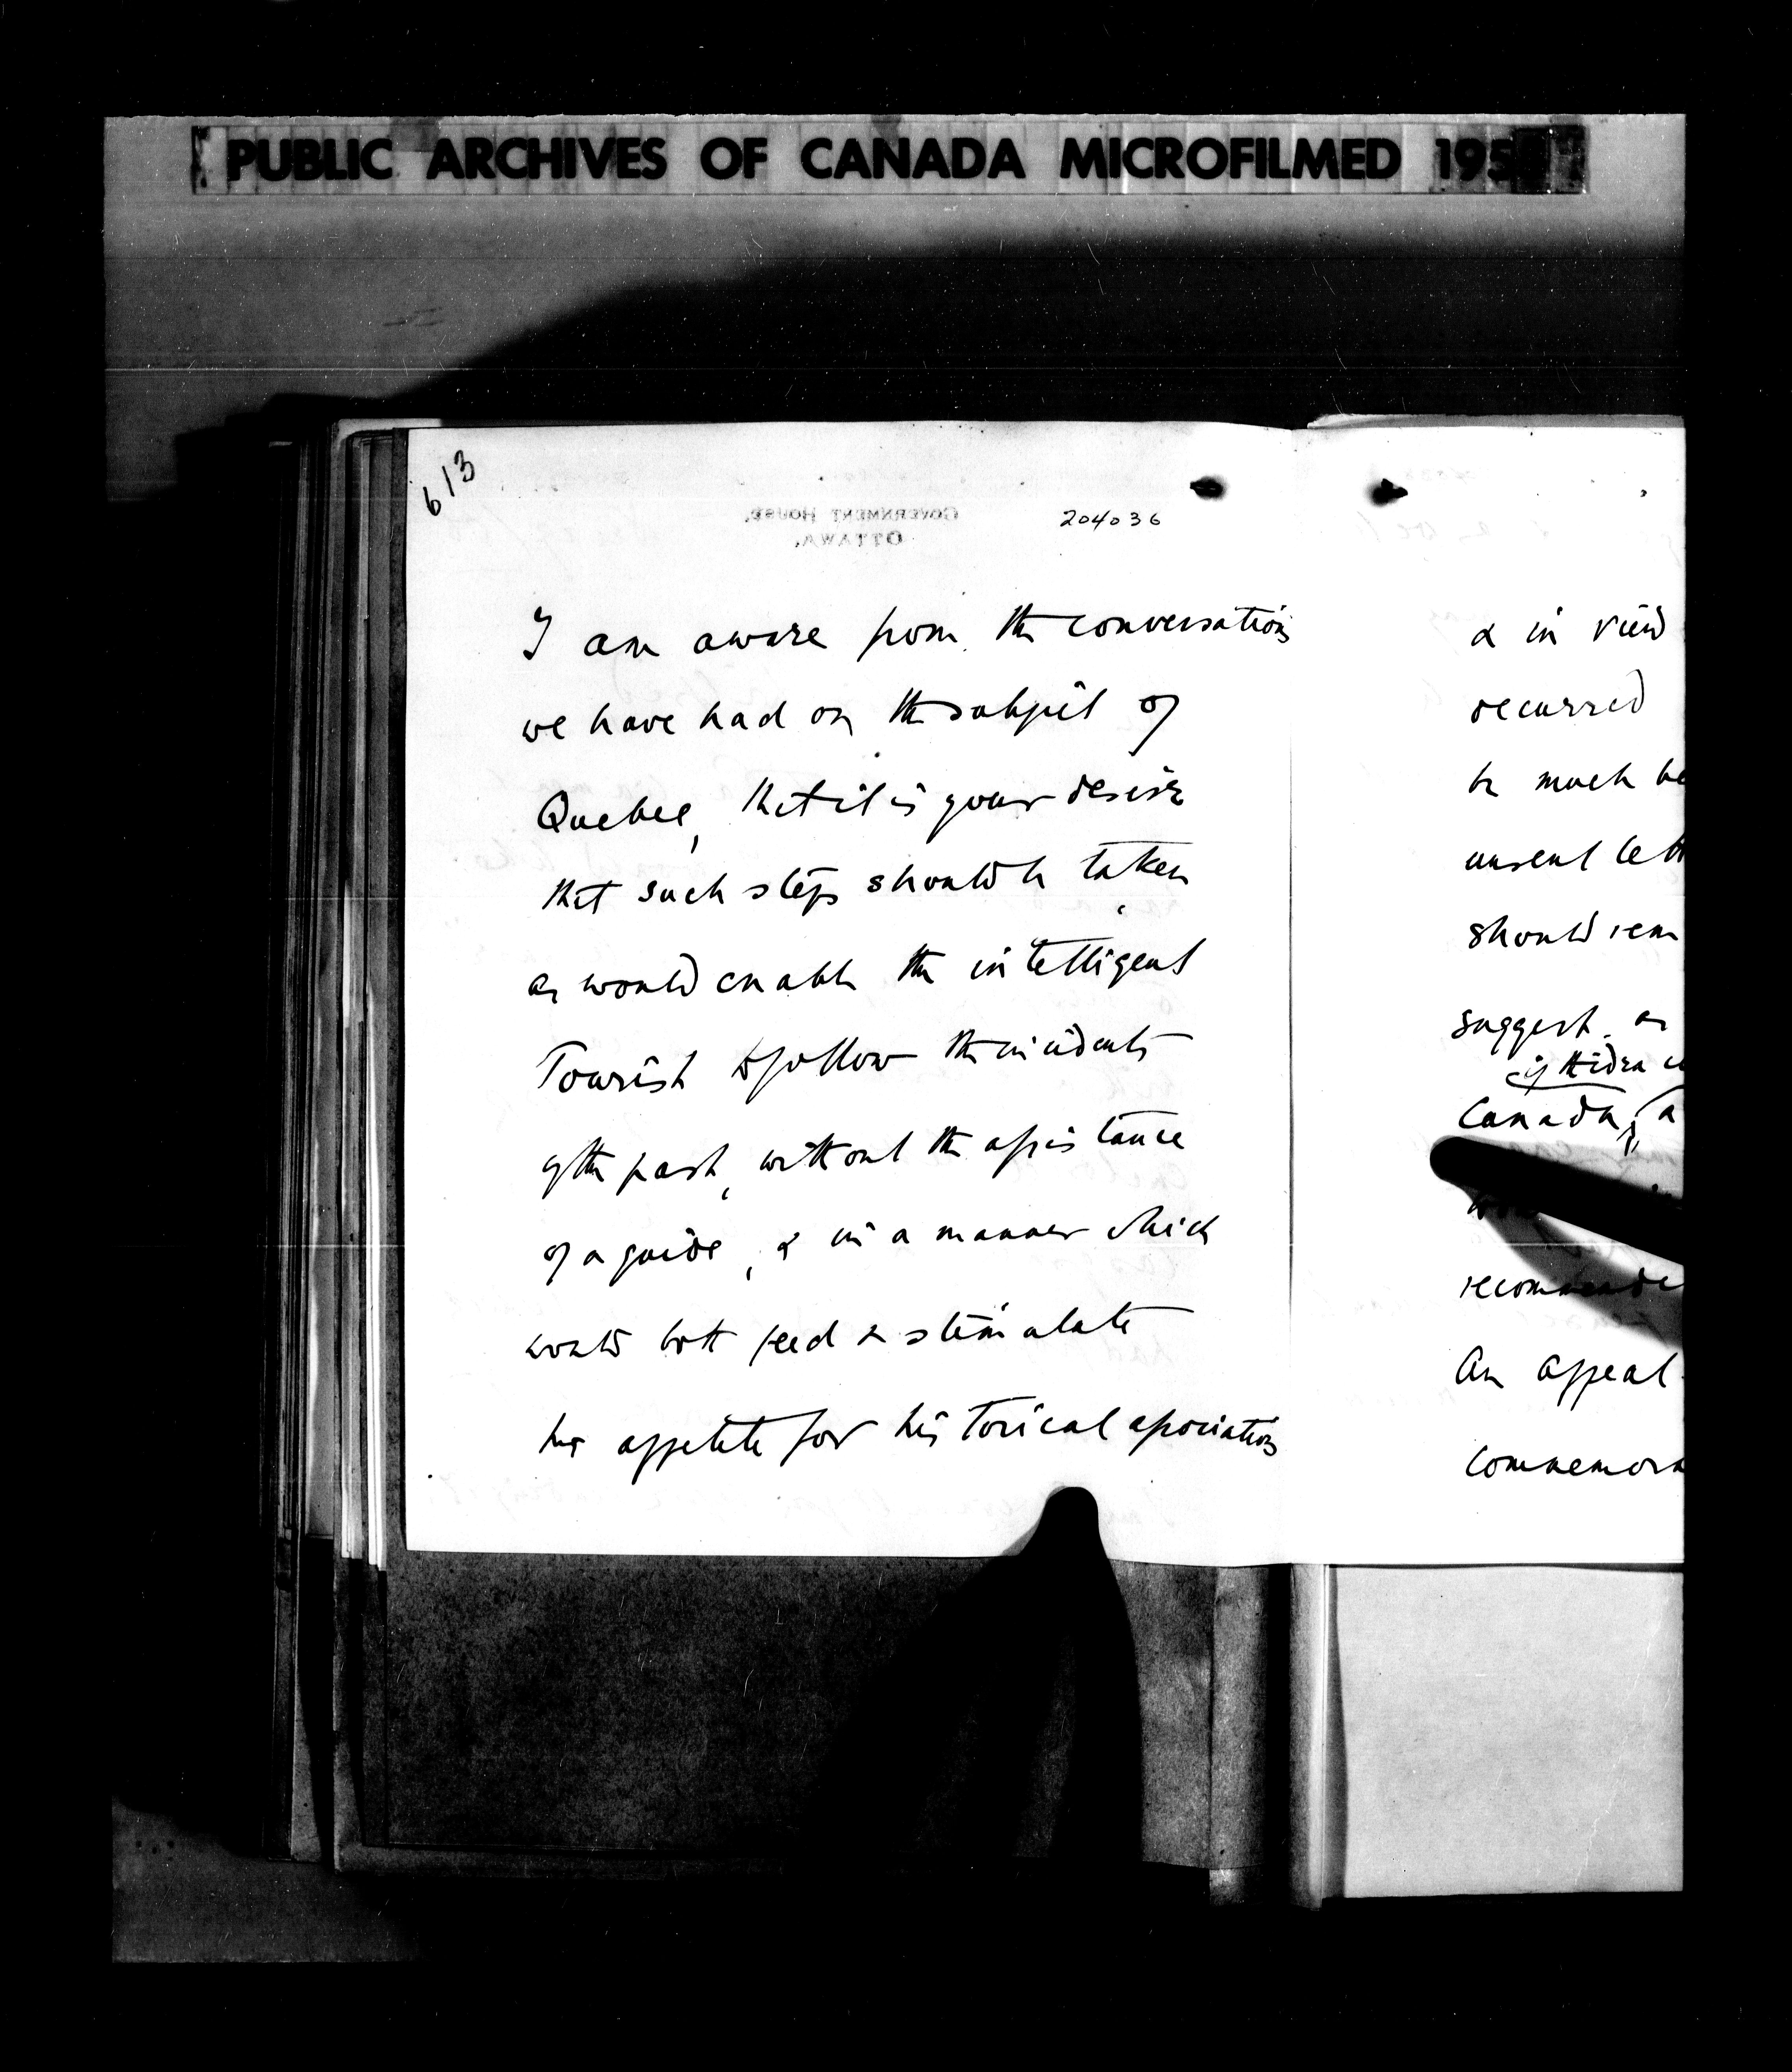 PUBLIC ARCHIVES OF CANADA MICROFILMED 195
613
GOVERNMENT HOUSE,
OTTAWA.
204036
I am aware from the conversations
we have had on the subject of
Quebec, that it is your desire
that such steps should be taken
as would enable the intelligent
Tourist to follow the incidents
of the past, without the assistance
of a guide, & in a manner which
would both feed & stimulate
his appetite for historical associations
& in view
occurred
be much be
unsent lett
should rem
suggest. as
Canada, a
recommende
An appeal
commemora